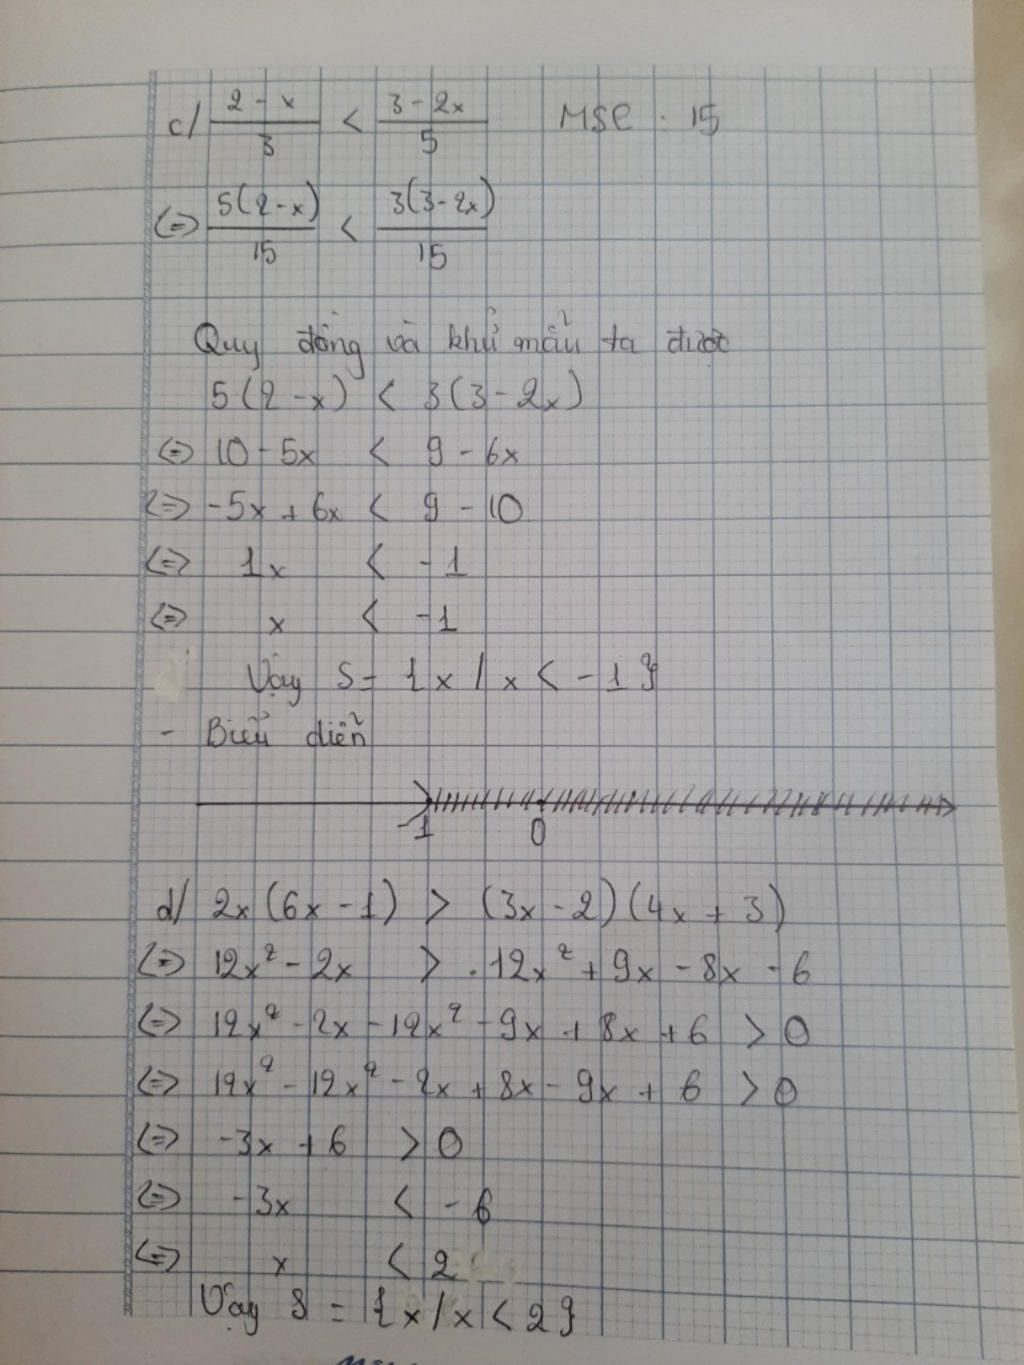 c/ (2 - x)/3 < (3 - 2x)/5 MSC : 15
<=> 5(2-x)/15 < 3(3-2x)/15
Quy đồng và khử mẫu ta được
5(2-x) < 3(3-2x)
<=> 10-5x < 9-6x
<=> -5x + 6x < 9-10
<=> 1x < -1
<=> x < -1
Vậy S = {x / x < -1}
- Biểu diễn
-1 0
d/ 2x(6x-1) > (3x-2)(4x+3)
<=> 12x² - 2x > 12x² + 9x - 8x - 6
<=> 12x² - 2x - 12x² - 9x + 8x + 6 > 0
<=> 12x² - 12x² - 2x + 8x - 9x + 6 > 0
<=> -3x + 6 > 0
<=> -3x < -6
<=> x < 2
Vậy S = {x / x < 2}